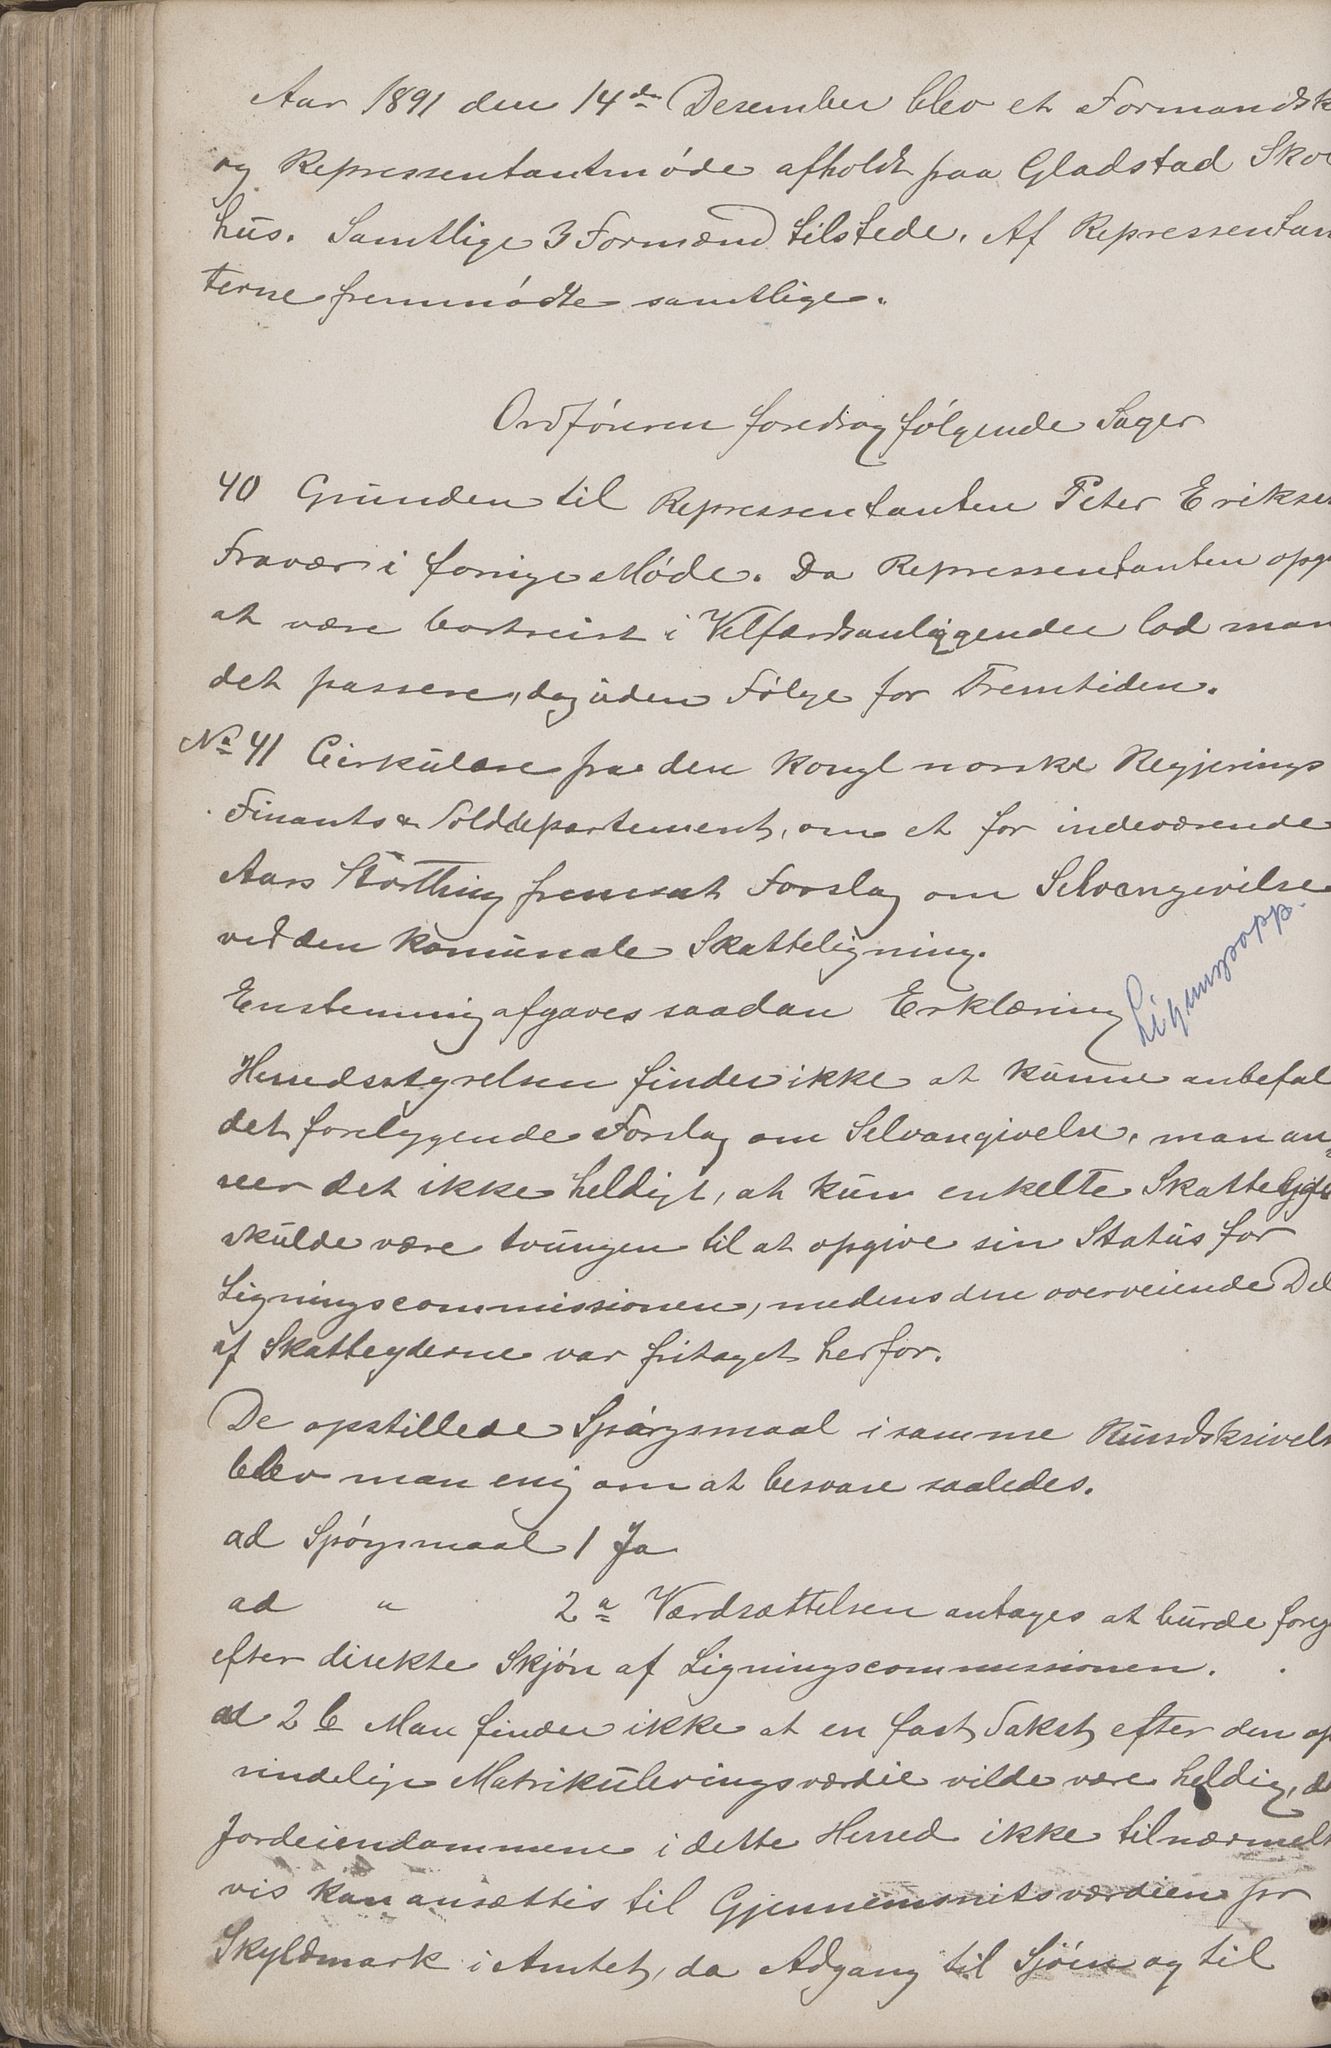 Aar 1891 den 14de Desember blev et Formandsk
og Repressentantmøde afholdt paa Gladstad Sko
hus. Samtlige 3 Formænd tilstede. Af Repressentan
terne fremmødte samtlige.
Ordføreren foredrog følgende Sager
40 Grunden til Repressentanten Peter Erikse
Fravær i forrige Møde. Da Repressentanten opg
at være bortreist i Velfærdsanliggender lod man
det passere, dog uden Følge for Fremtiden.
No 41 Cirkulære fra den Kongl norske Regjerings
Finants & Tolddepartement, om et for indeværende
Aars Storthing fremsat Forslag om Selvangivelse
ved den Komunale Skatteligning.
Ligningsopp.
Enstemmig afgaves saadan Erklæring
Herredsstyrelsen finder ikke at kunne anbefal
det foreliggende Forslag om Selvangivelse. man an
seer det ikke heldigt, at kun enkelte Skatteyde
skulde være tvungen til at opgive sin Status for
Ligningscommissionen, medens den overveiende Del
af Skatteyderne var fritaget herfor.
De opstillede Spørgsmaal i samme Rundskrivels
blev man enig om at besvare saaledes.
ad Spørgsmaal 1 Ja
ad " 2 a Værdsættelsen antages at burde foreg
efter direkte Skjøn af Ligningscommissionen.
ad 2 b Man finder ikke at en fast Takst efter den op
rindelige Matrikuleringsværdie vilde være heldig, d
Jordeiendommene i dette Herred ikke tilnærmels
vis kan ansættes til Gjennemsnitsværdien pr
Skyldmark i Amtet, da Adgang til Sjøen og til